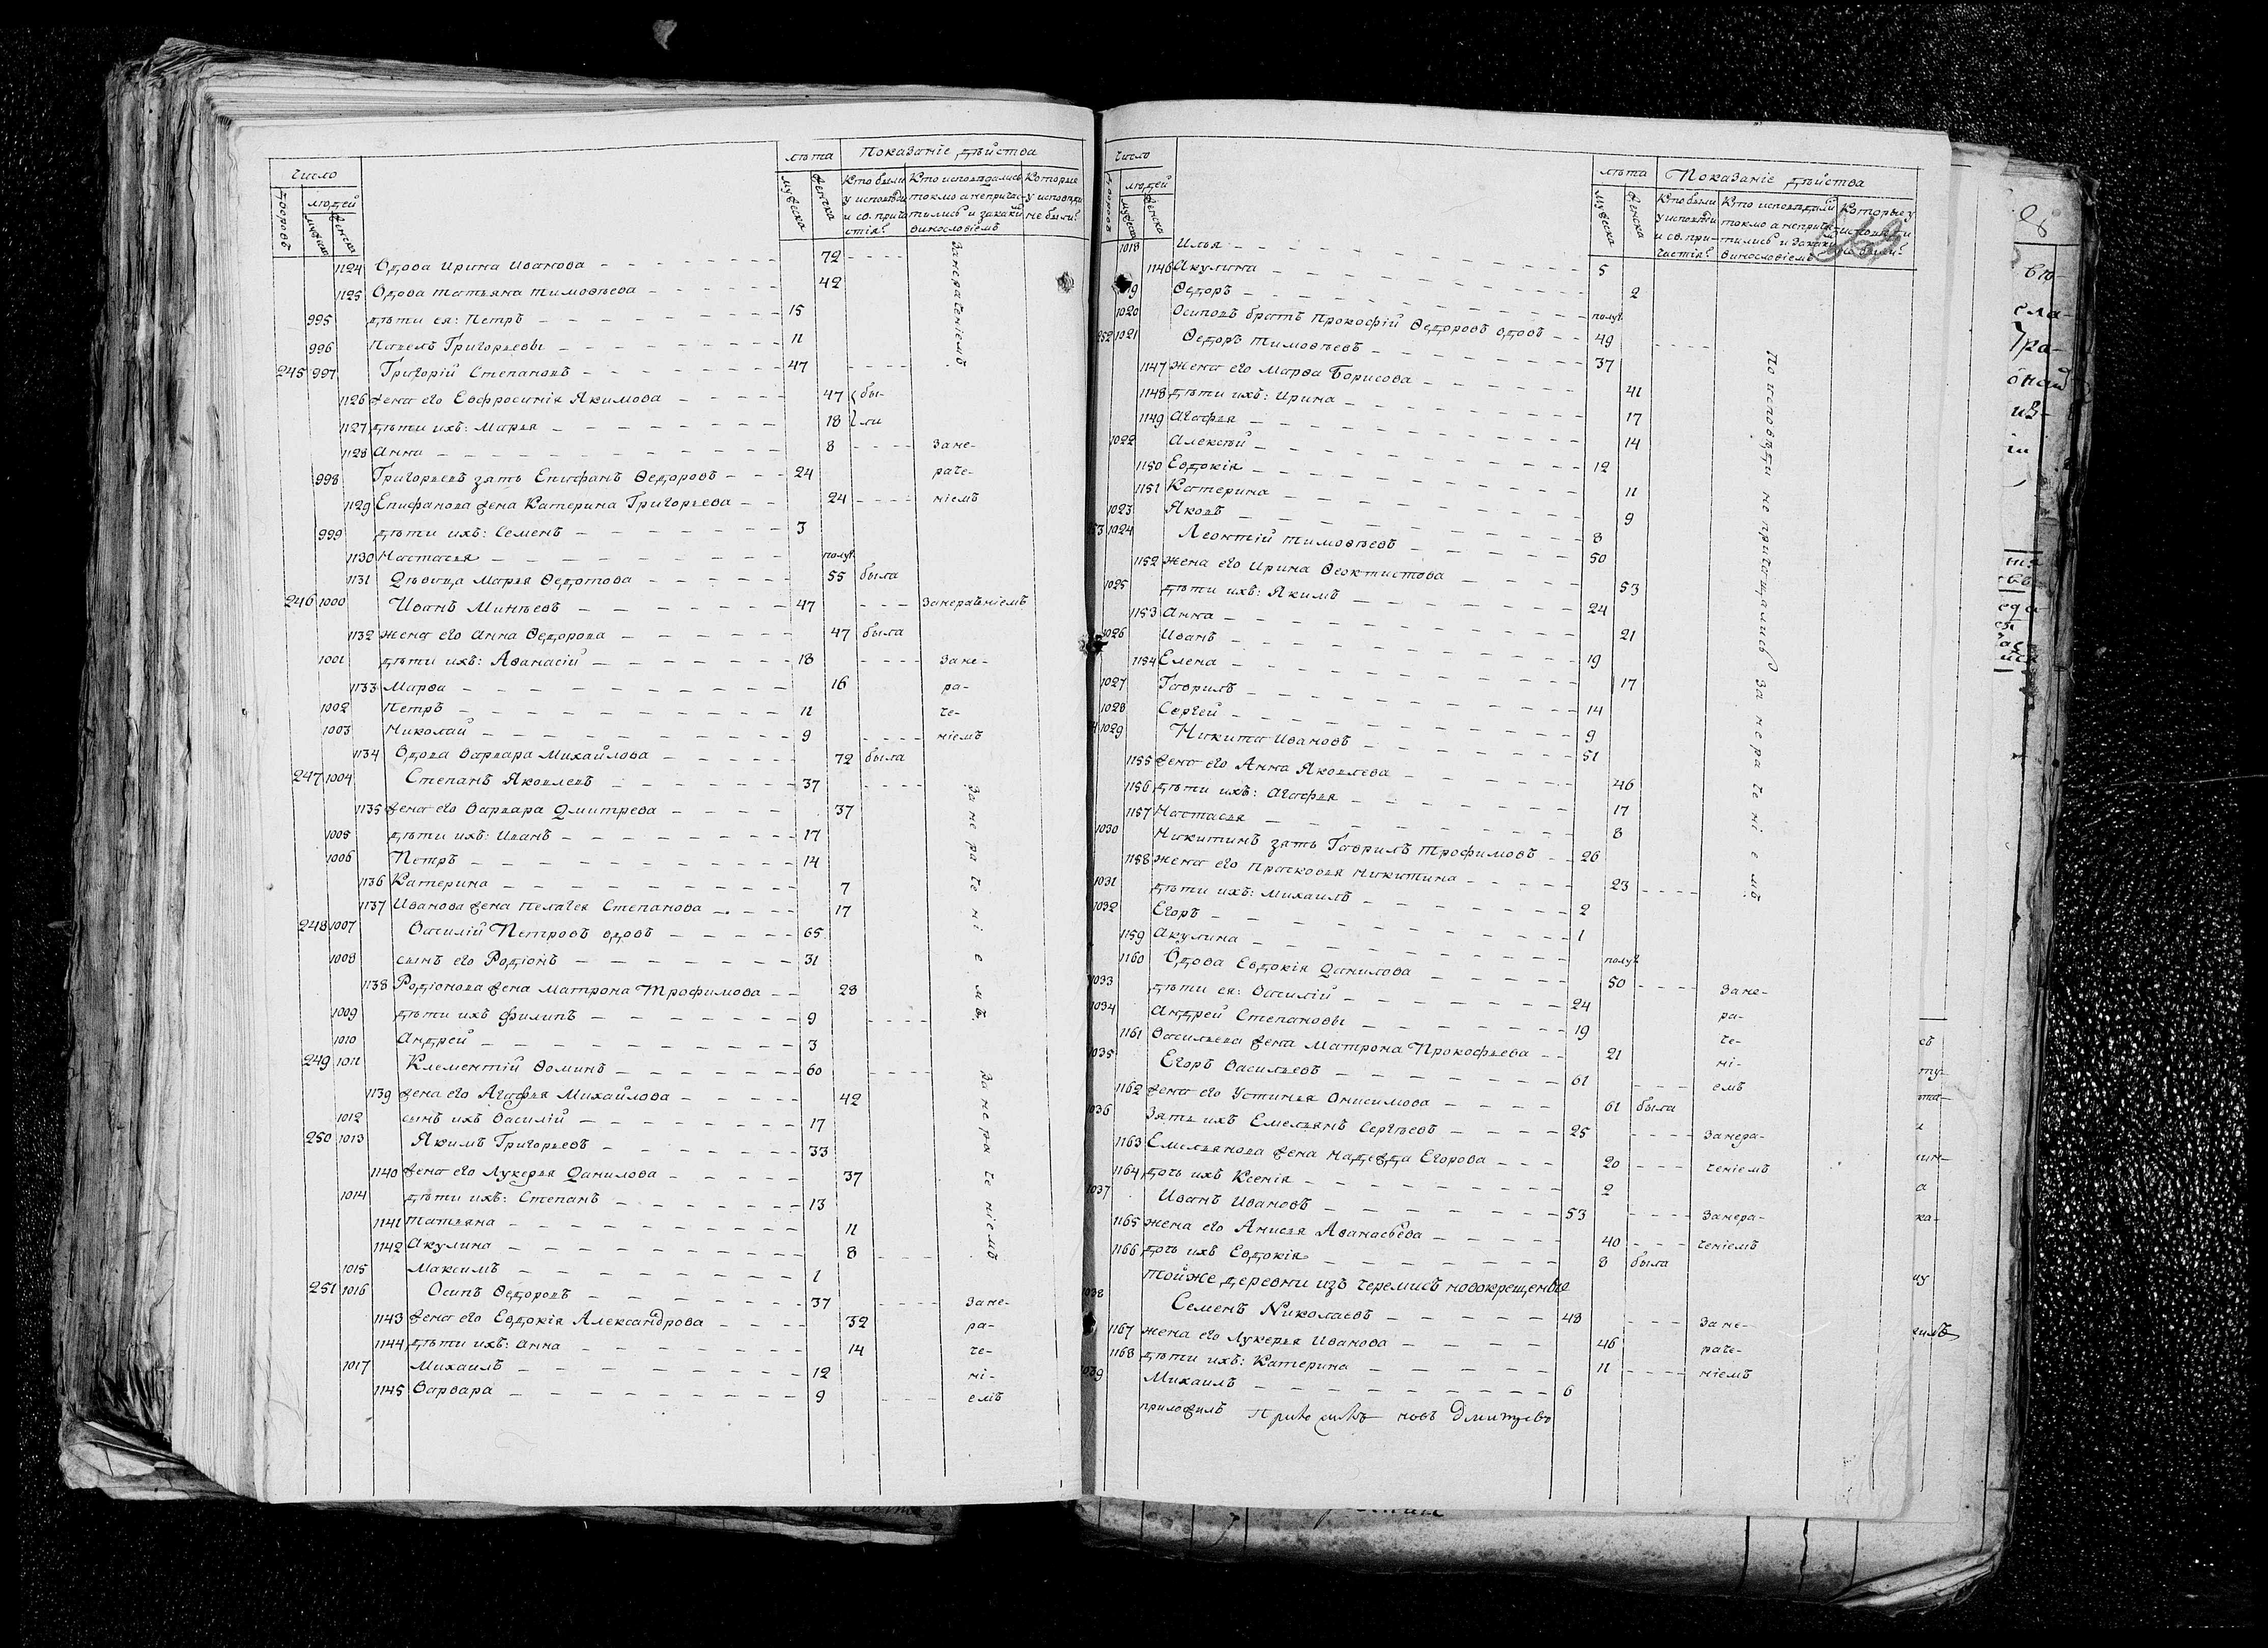 число
дворовъ
людей
мужеска
женска
лѣта
мужеска
женска
Показаніе дѣйства
Кто были у исповѣди и св. причастія?
Кто исповѣдались токмо а непричастились и закаким винословіемъ
Которые у исповѣди не были?
1124 Вдова Ирина Иванова 72
1125 Вдова Татьяна Тимоѳеева 42 Занерачѣніемъ
995 дѣти ея: Петръ 15
996 Павелъ Григорьевы 11
245 997 Григорій Степановъ 47
1126 жена его Евфросинія Якимова 47 бы-
1127 дѣти ихъ: Марья 18 ли
1128 Анна 8 Зане-
998 Григорьевъ зять Епифанъ Ѳедоровъ 24 раче-
1129 Епифанова жена Катерина Григорьева 24 ніемъ
999 дѣти ихъ: Семенъ 3
1130 Настасья полуг
1131 Дѣвица Марья Ѳедотова 55 была
246 1000 Иванъ Минѣевъ 47 Занерачѣніемъ
1132 жена его Анна Ѳедорова 47 была
1001 дѣти ихъ: Аѳанасій 18 Зане-
1133 Марѳа 16 ра-
1002 Петръ 11 че-
1003 Николай 9 ніемъ
1134 Вдова Варвара Михайлова 72 была
247 1004 Степанъ Яковлевъ 37 За не ра че ні е мъ
1135 жена его Варвара Дмитрева 37
1005 дѣти ихъ: Иванъ 17
1006 Петръ 14
1136 Катерина 7
1137 Иванова жена Пелагея Степанова 17
248 1007 Василій Петровъ вдовъ 65
1008 сынъ его Родіонъ 31
1138 Родіонова жена Матрона Трофимова 28
1009 дѣти ихъ Филипъ 9
1010 Андрей 3
249 1011 Клементій Ѳоминъ 60 За не ра че ніемъ
1139 жена его Агафья Михайлова 42
1012 сынъ ихъ Василій 17
250 1013 Якимъ Григорьевъ 33
1140 жена его Лукерья Данилова 37
1014 дѣти ихъ: Степанъ 13
1141 Татьяна 11
1142 Акулина 8
1015 Максимъ 1
251 1016 Осипъ Ѳедоровъ 37 Зане-
1143 жена его Евдокія Александрова 32 ра-
1144 дѣти ихъ: Анна 14 че-
1017 Михаилъ 12 ні-
1145 Варвара 9 емъ
число
людей
мужеска
женска
лѣта
мужеска
женска
Показаніе дѣйства
Кто были у исповѣди и св. причастія?
Кто исповѣдали токмо а непричастились и закаким винословіемъ
Которые у исповѣди не были?
1018 Илья 5
1146 Акулина 2
1019 Ѳедоръ полуг
1020 Осиповъ братъ Прокофій Ѳедоровъ вдовъ 49
252 1021 Ѳедоръ Тимоѳеевъ 37 По исповѣди не причащались За не ра че ні е мъ
1147 жена его Марѳа Борисова 41
1148 дѣти ихъ: Ирина 17
1149 Агафья 14
1022 Алексѣй 12
1150 Евдокія 11
1151 Катерина 9
1023 Яковъ 8
1024 Леонтій Тимоѳеевъ 50
1152 жена его Ирина Ѳеоктистова 53
1025 дѣти ихъ: Якимъ 24
1153 Анна 21
1026 Иванъ 19
1154 Елена 17
1027 Гаврилъ 14
1028 Сергей 9
1029 Никита Ивановъ 51
1155 жена его Анна Яковлева 46
1156 дѣти ихъ: Агафья 17
1157 Настасья 8
1030 Никитинъ зять Гаврилъ Трофимовъ 26
1158 жена его Прасковья Никитина 23
1031 дѣти ихъ: Михаилъ 2
1032 Егоръ 1
1159 Акулина полуг
1160 Вдова Евдокія Данилова 50 Зане-
1033 дѣти ея: Василій 24 ра-
1034 Андрей Степановы 19 че-
1161 Васильева жена Матрона Прокофьева 21 ні-
1035 Егоръ Васильевъ 61 емъ
1162 жена его Устинья Онисимова 61 была
1036 Зять ихъ Емельянъ Сергѣевъ 25 Занера-
1163 Емельянова жена Надежда Егорова 20 ченіемъ
1164 дочь ихъ Ксенія 2
1037 Иванъ Ивановъ 53 Занера-
1165 жена его Анисья Аѳанасьева 40 ченіемъ
1166 дочь ихъ Евдокія 8 была
Тойже деревни изъ черемисъ новокрещенные
1038 Семенъ Николаевъ 48 Зане-
1167 жена его Лукерья Иванова 46 раче-
1168 дѣти ихъ: Катерина 11 ніемъ
1039 Михаилъ 6
приложилъ